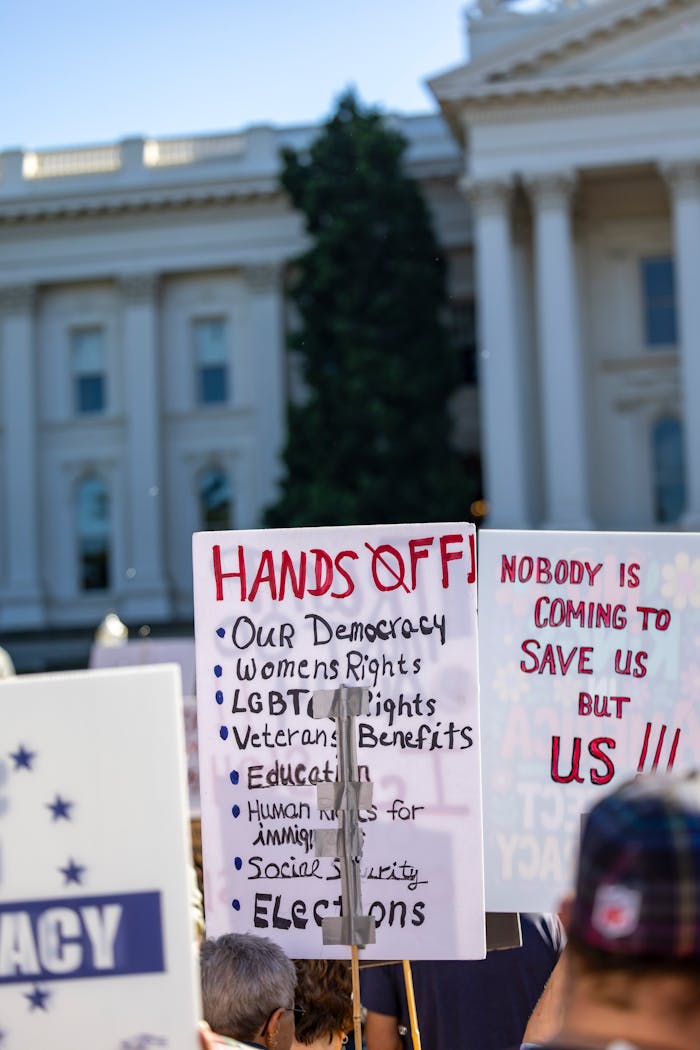 HANDS OFF!
• Our Democracy
• Womens Rights
• LGBTQ Rights
• Veterans Benefits
• Education
• Human Rights for
immig
• Social Security
• Elections
NOBODY IS
COMING TO
SAVE US
BUT
US!!!
ACY